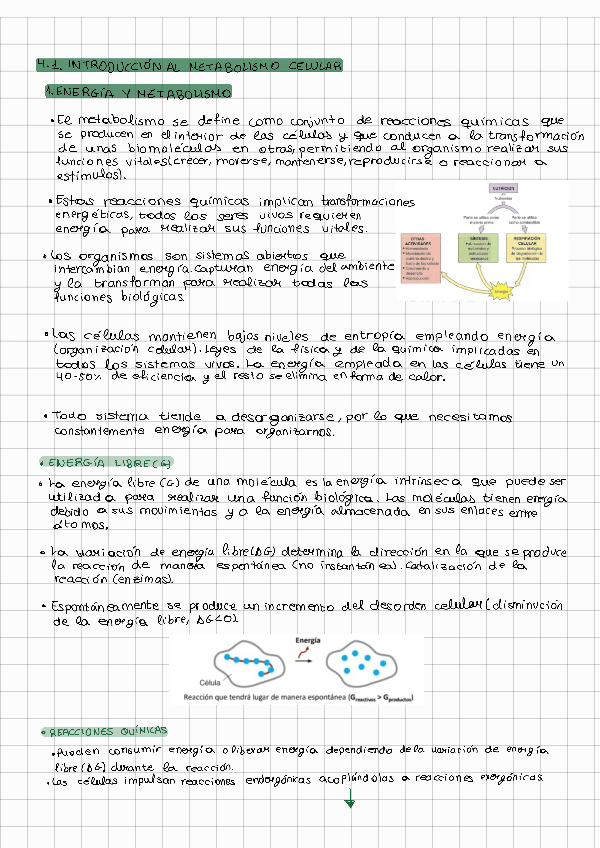 4.1. INTRODUCCIÓN AL METABOLISMO CELULAR
1. ENERGÍA Y METABOLISMO
• El metabolismo se define como conjunto de reacciones químicas que
se producen en el interior de las células y que conducen a la transformación
de unas biomoléculas en otras, permitiendo al organismo realizar sus
funciones vitales (crecer, moverse, mantenerse, reproducirse o reaccionar a
estímulos).
• Estas reacciones químicas implican transformaciones
energéticas, todos los seres vivos requieren
energía para realizar sus funciones vitales.
• Los organismos son sistemas abiertos que
intercambian energía. Capturan energía del ambiente
y la transforman para realizar todas las
funciones biológicas.
NUTRICIÓN
Nutrientes
Parte se utiliza como
materia prima
Parte se utiliza
como combustible
OTRAS
ACTIVIDADES
SÍNTESIS
RESPIRACIÓN
CELULAR
Energía
• Las células mantienen bajos niveles de entropía empleando energía
(organización celular). Leyes de la física y de la química implicadas en
todos los sistemas vivos. La energía empleada en las células tiene un
40-50% de eficiencia y el resto se elimina en forma de calor.
• Todo sistema tiende a desorganizarse, por lo que necesitamos
constantemente energía para organizarnos.
• ENERGÍA LIBRE (G)
• La energía libre (G) de una molécula es la energía intrínseca que puede ser
utilizada para realizar una función biológica. Las moléculas tienen energía
debido a sus movimientos y a la energía almacenada en sus enlaces entre
átomos.
• La variación de energía libre (ΔG) determina la dirección en la que se produce
la reacción de manera espontánea (no instantánea). Catalización de la
reacción (enzimas).
• Espontáneamente se produce un incremento del desorden celular (disminución
de la energía libre, ΔG<0)
Energía
Célula
Reacción que tendrá lugar de manera espontánea (Greactivos > Gproductos)
• REACCIONES QUÍMICAS
• Pueden consumir energía o liberar energía dependiendo de la variación de energía
libre (ΔG) durante la reacción.
• Las células impulsan reacciones endergónicas acoplándolas a reacciones exergónicas